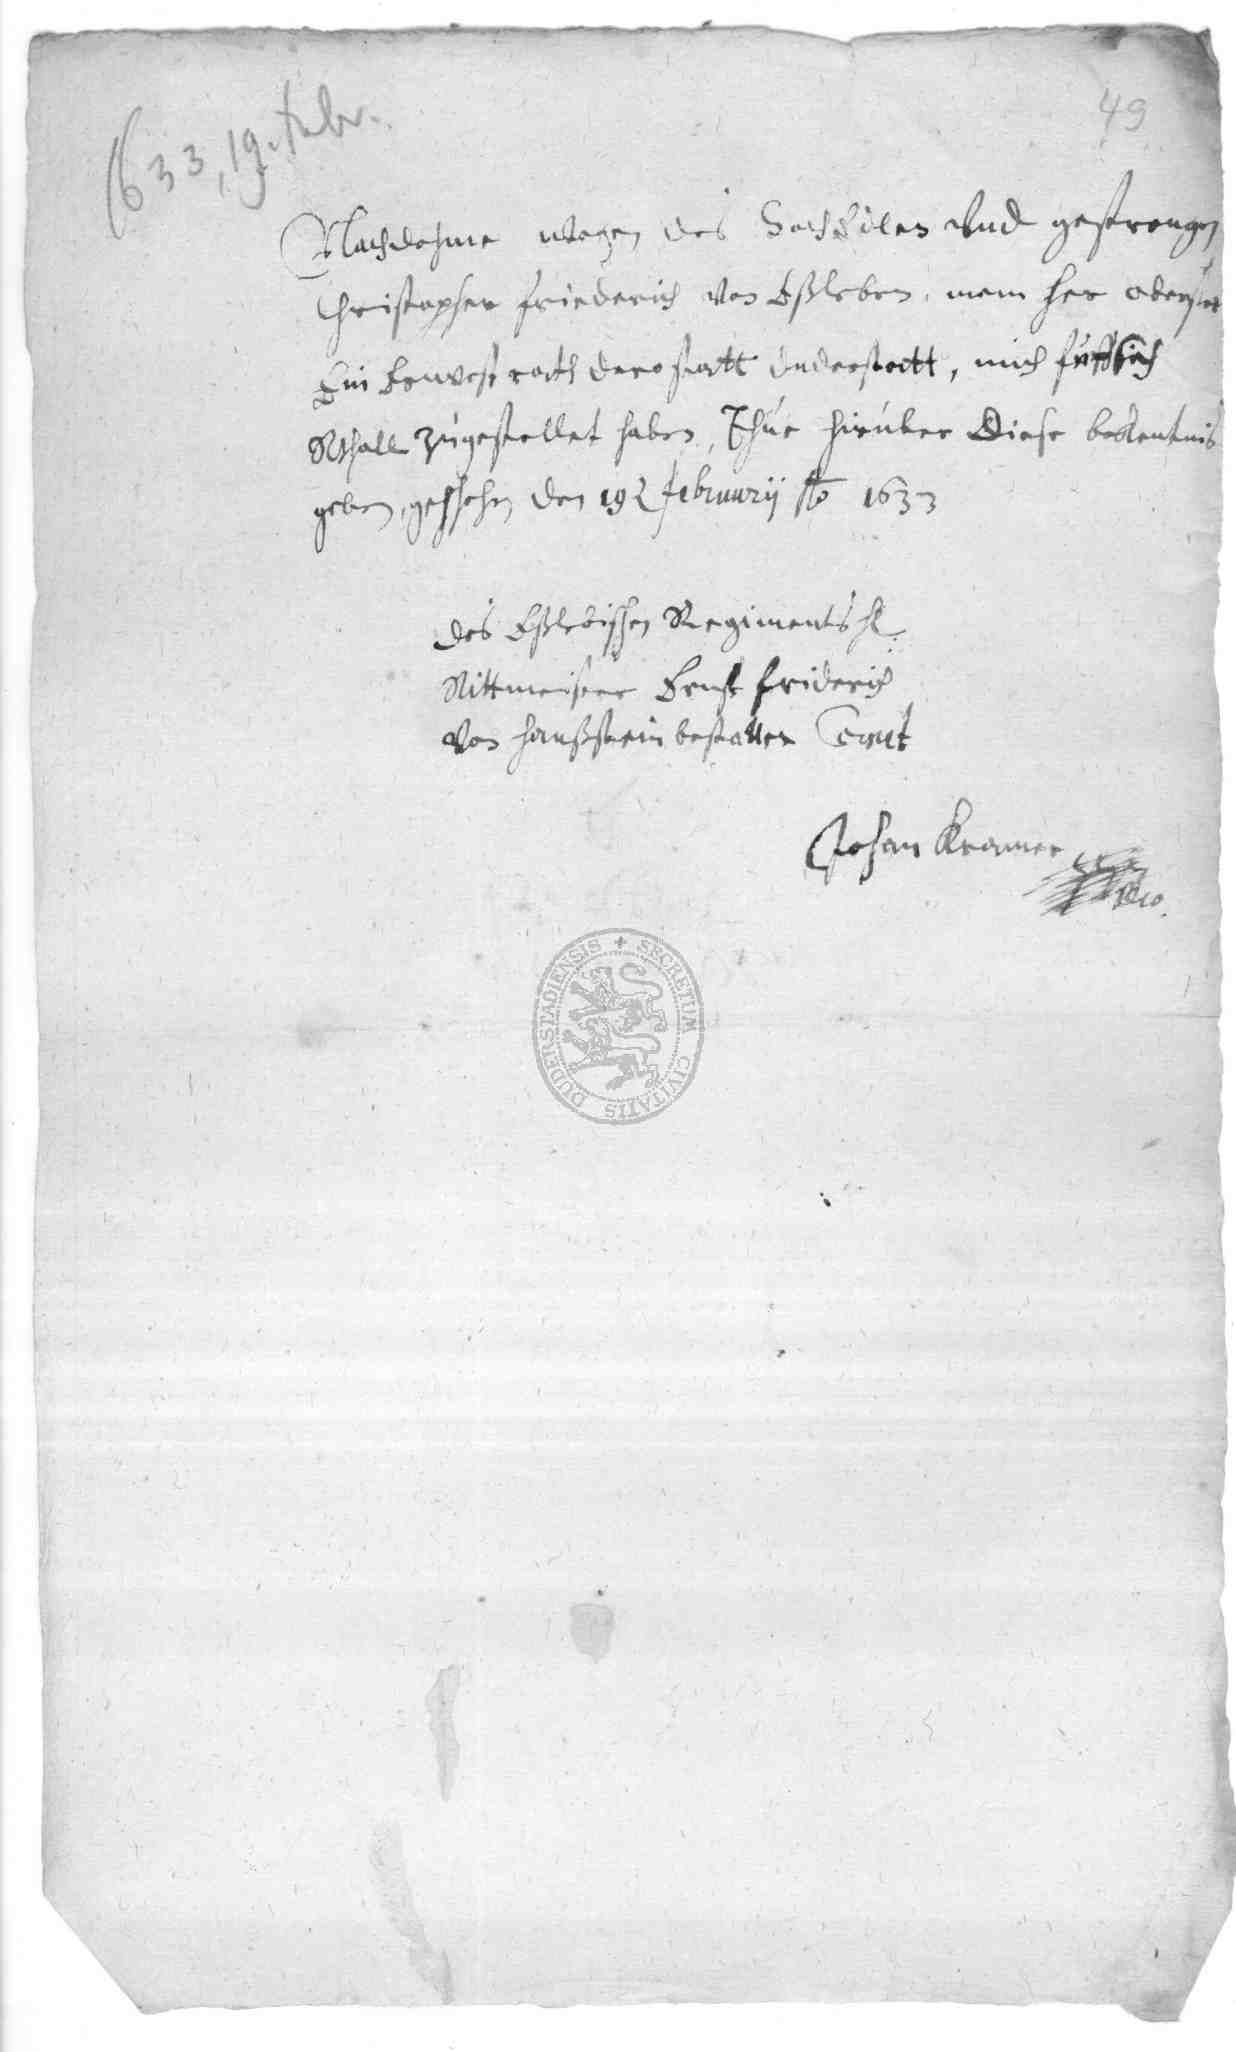 49
1633, 19. Febr.
Nachdehme wegen des HochEdlen Vnd gestrengen
Christopher Friederich von Eßleben, mein her oberster
Ein Ernvest rath dero statt Duderstatt, mich funffzich
Rthall zugestellet haben, Thue hirüber Diese bekentnis
geben, geschehn den 19 Februarij Ao 1633
des Eßlebischen Regiments
Rittmeister Ernst friderich
von hanßstein bestalter
Johan Kramer
SECRETUM CIVITATIS DUDERSTADIENSIS